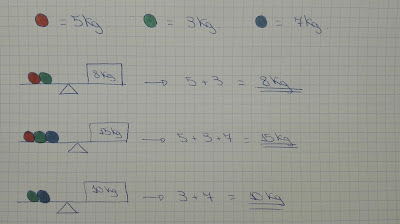 = 5kg = 3kg = 7kg
8kg → 5 + 3 = 8kg
15kg → 5 + 3 + 7 = 15kg
10kg → 3 + 7 = 10kg